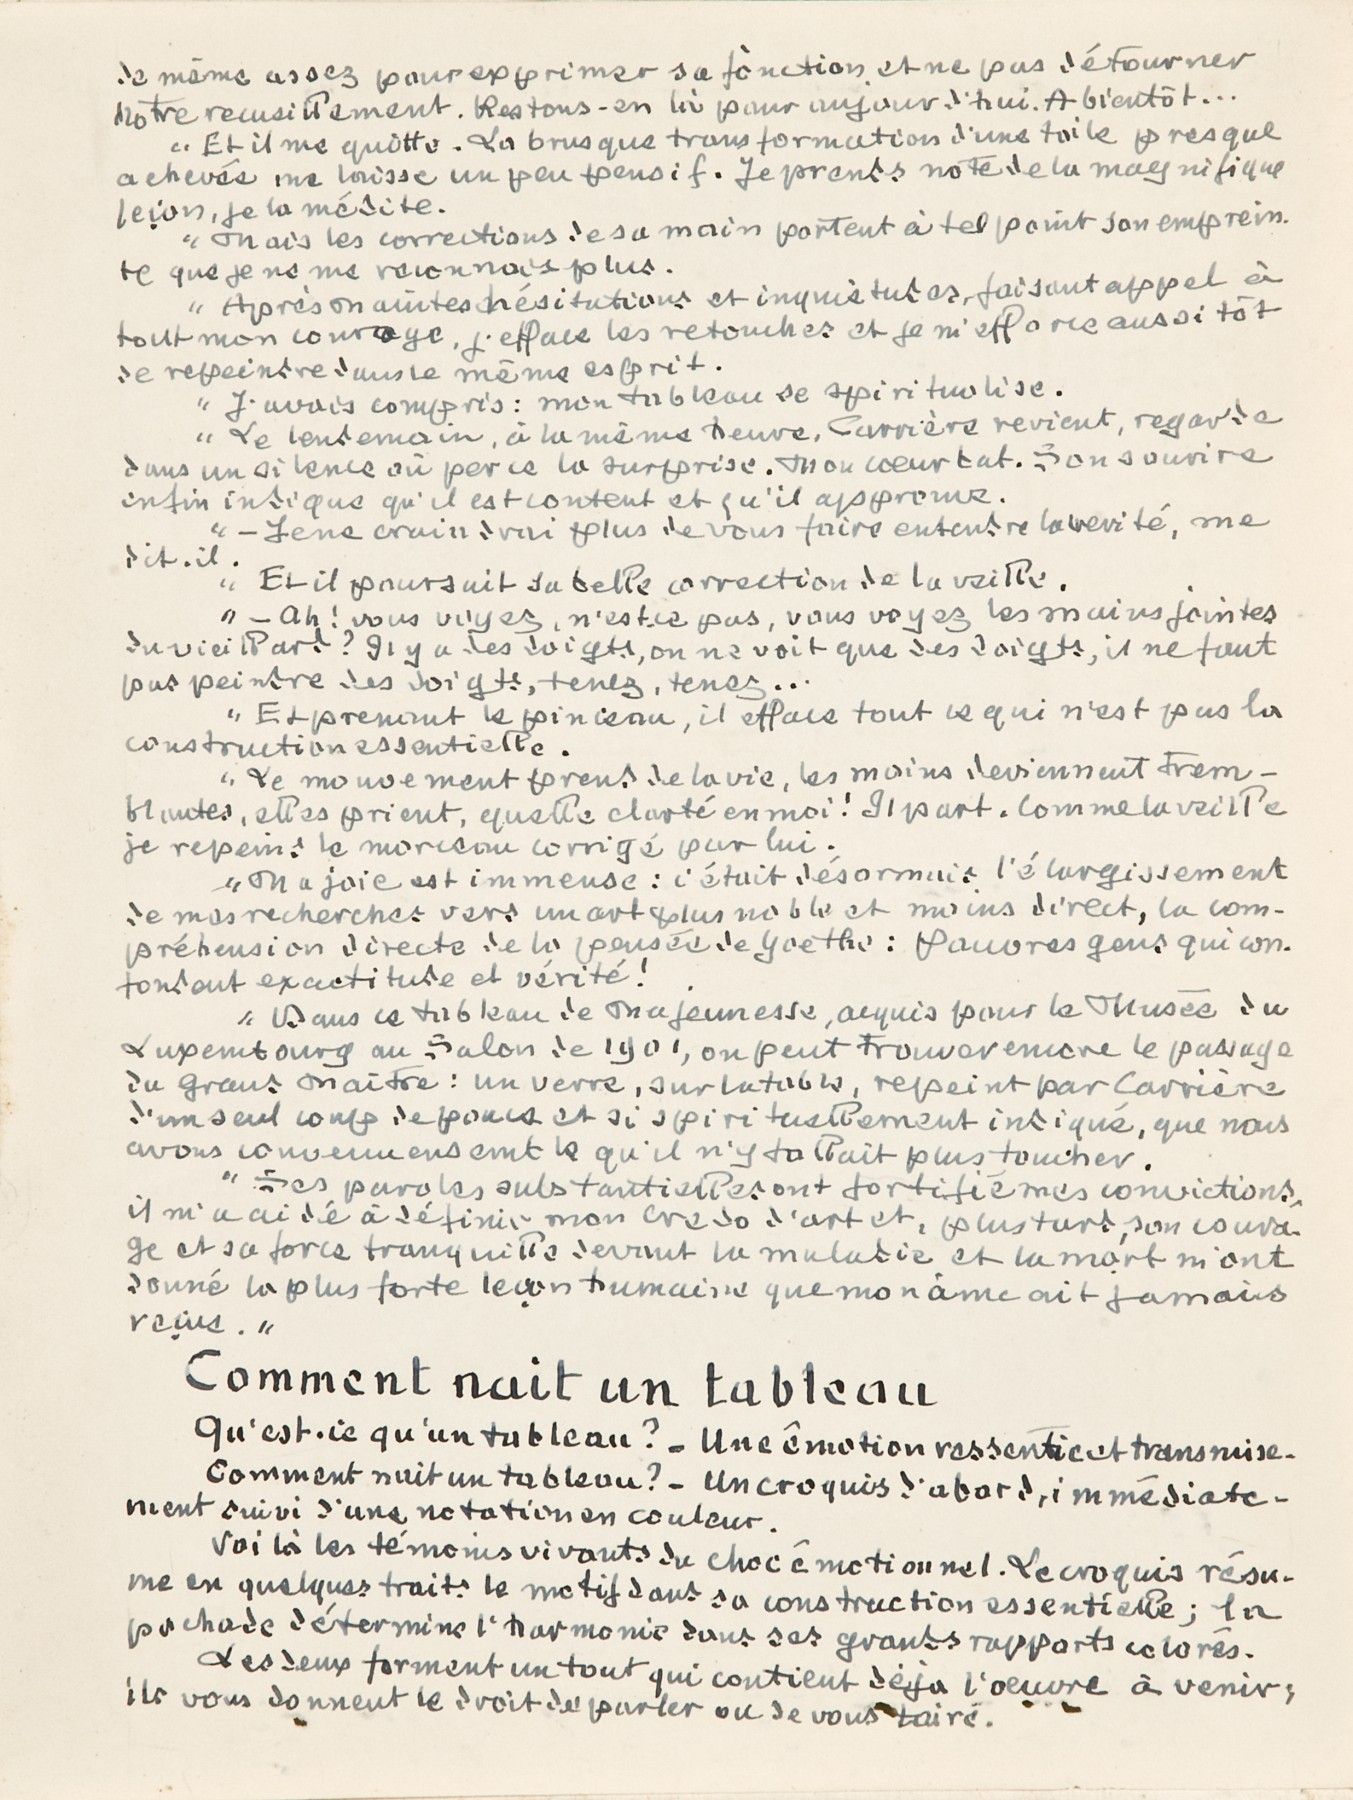 de même assez pour exprimer sa fonction et ne pas détourner
notre recueillement. Restons-en là pour aujourd'hui. A bientôt...
" Et il me quitte. La brusque transformation d'une toile presque
achevée me laisse un peu pensif. Je prends note de la magnifique
leçon, je la médite.
" Mais les corrections de sa main portent à tel point son emprein-
te que je ne me reconnais plus.
" Après maintes hésitations et inquiétudes, faisant appel à
tout mon courage, j'efface les retouches et je m'efforce aussitôt
de repeindre dans le même esprit.
" J'avais compris : mon tableau se spiritualise.
" Le lendemain, à la même heure, Carrière revient, regarde
dans un silence où perce la surprise. Mon cœur bat. Son sourire
enfin indique qu'il est content et qu'il approuve.
" — Je ne craindrai plus de vous faire entendre la vérité, me
dit-il.
" Et il poursuit sa belle correction de la veille.
" — Ah ! vous voyez, n'est-ce pas, vous voyez les mains jointes
du vieillard ? Il y a des doigts, on ne voit que des doigts, il ne faut
pas peindre des doigts, tenez, tenez...
" Et prenant le pinceau, il efface tout ce qui n'est pas la
construction essentielle.
" Le mouvement prend de la vie, les mains deviennent trem-
blantes, elles prient, quelle clarté en moi ! Il part. Comme la veille
je repeins le morceau corrigé par lui.
" Ma joie est immense : c'était désormais l'élargissement
de mes recherches vers un art plus noble et moins direct, la com-
préhension directe de la pensée de Goethe : Pauvres gens qui con-
fondent exactitude et vérité !
" Dans ce tableau de Ma jeunesse, acquis pour le Musée du
Luxembourg au Salon de 1901, on peut trouver encore le passage
du grand Maître : un verre, sur la table, repeint par Carrière
d'un seul coup de pouce et si spirituellement indiqué, que nous
avons convenu ensemble qu'il n'y fallait plus toucher.
" Ses paroles substantielles ont fortifié mes convictions,
il m'a aidé à définir mon credo d'art et, plus tard, son coura-
ge et sa force tranquille devant la maladie et la mort m'ont
donné la plus forte leçon humaine que mon âme ait jamais
reçue. "
Comment nait un tableau
Qu'est-ce qu'un tableau ? — Une émotion ressentie et transmise.
Comment nait un tableau ? — Un croquis d'abord, immédiate-
ment suivi d'une notation en couleur.
Voilà les témoins vivants du choc émotionnel. Le croquis résu-
me en quelques traits le motif dans sa construction essentielle ; la
pochade détermine l'harmonie dans ses grands rapports colorés.
Les deux forment un tout qui contient déjà l'oeuvre à venir ;
ils vous donnent le droit de parler ou de vous taire.